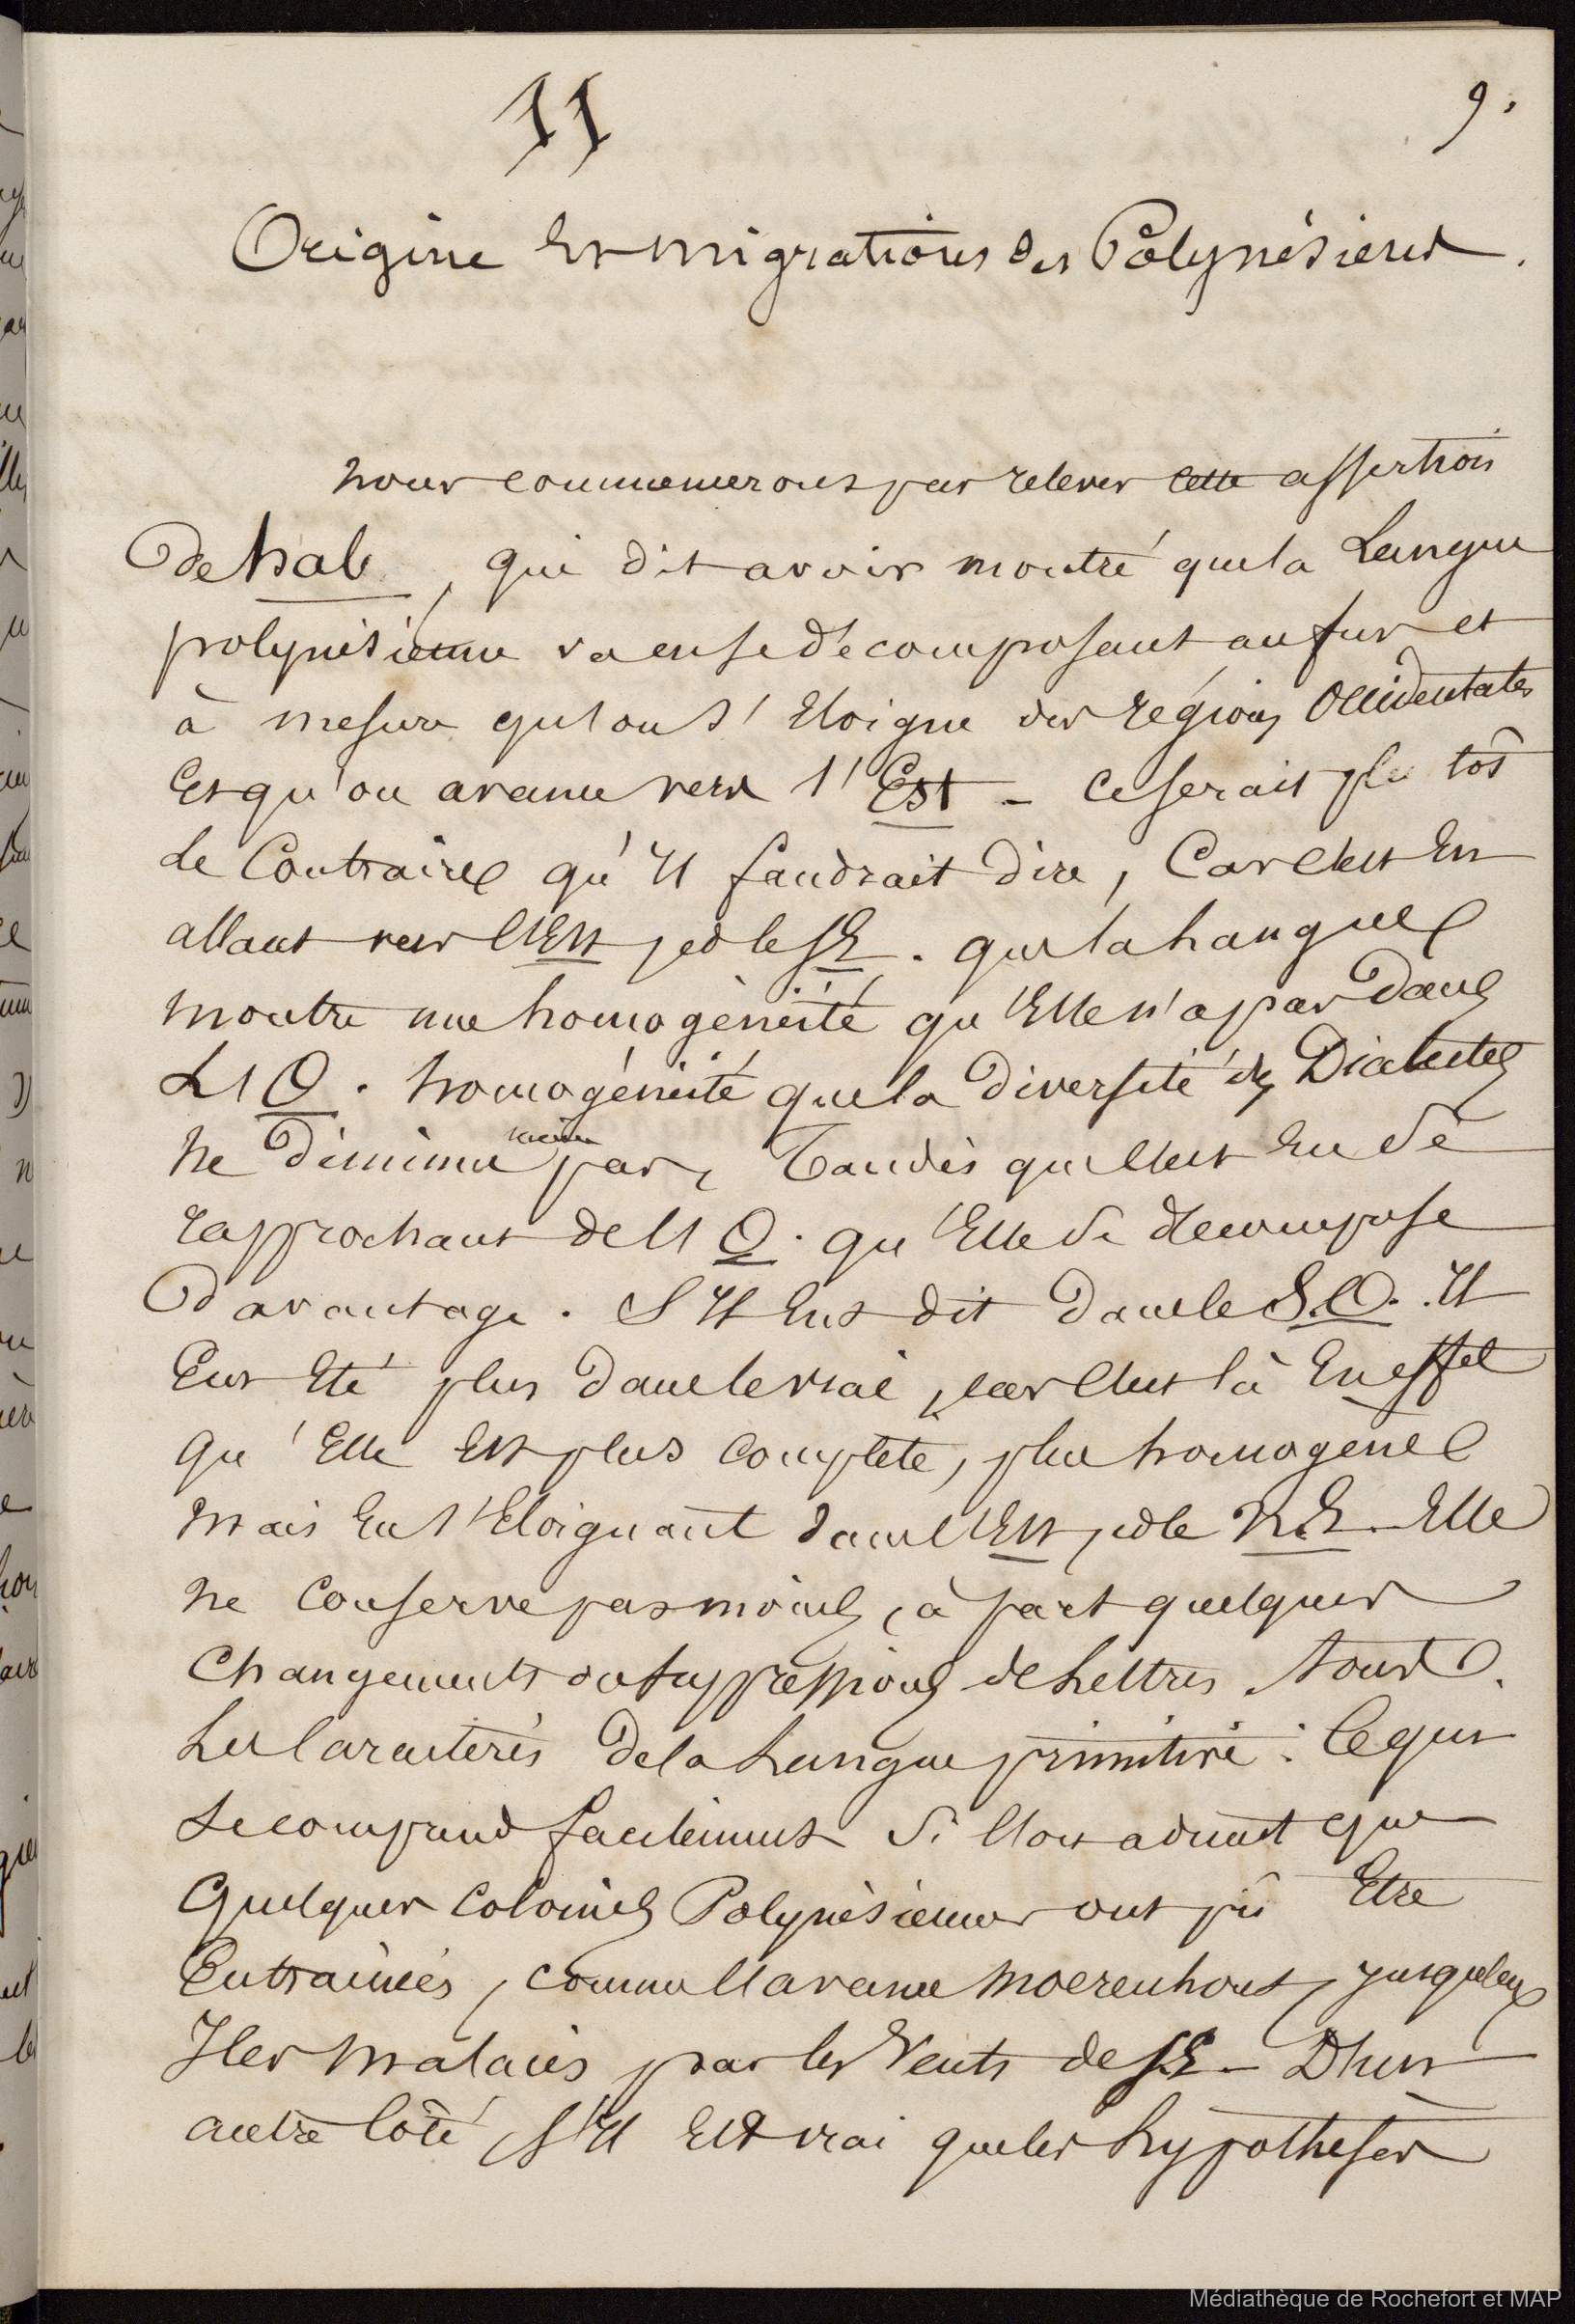 11
9.
Origine et migrations des Polynésiens.
Nous commencerons par relever cette assertion
de hale, qui dit avoir montré que la Langue
polynésienne va en se décomposant au fur et
à mesure qu'on s'éloigne des régions Occidentales
et qu'on avance vers l'Est - ce serait plu tôt
le Contraire qu'il faudrait dire, Car c'est En
allant vers l'Est, et le SE. que la Langue
montre une homogénéité qu'Elle n'a pas dans
L'O. homogénéité que la diversité des Dialectes
ne diminue même pas, Tandis que c'est En se
rapprochant de l'O. qu'Elle se décompose
davantage. S'il Eut dit dans le S.O. il
Eut Eté plus dans le vrai, car c'est là En effet
qu'Elle Est plus complète, plus homogène
mais En s'Eloignant dans l'Est, et le N.E. Elle
ne Conserve pas moins, à part quelques
Changements ou suppressions de Lettres, tous
Les Caractères de la Langue primitive : Ce qui
se comprend facilement si l'on admet que
Quelques Colonies Polynésiennes ont pû Etre
Entrainées, comme l'avance Moerenhout, jusqu'aux
Iles Malaies par les Vents de SE - D'un
autre Côté, S'il Est vrai que les hypothèses
Médiathèque de Rochefort et MAP